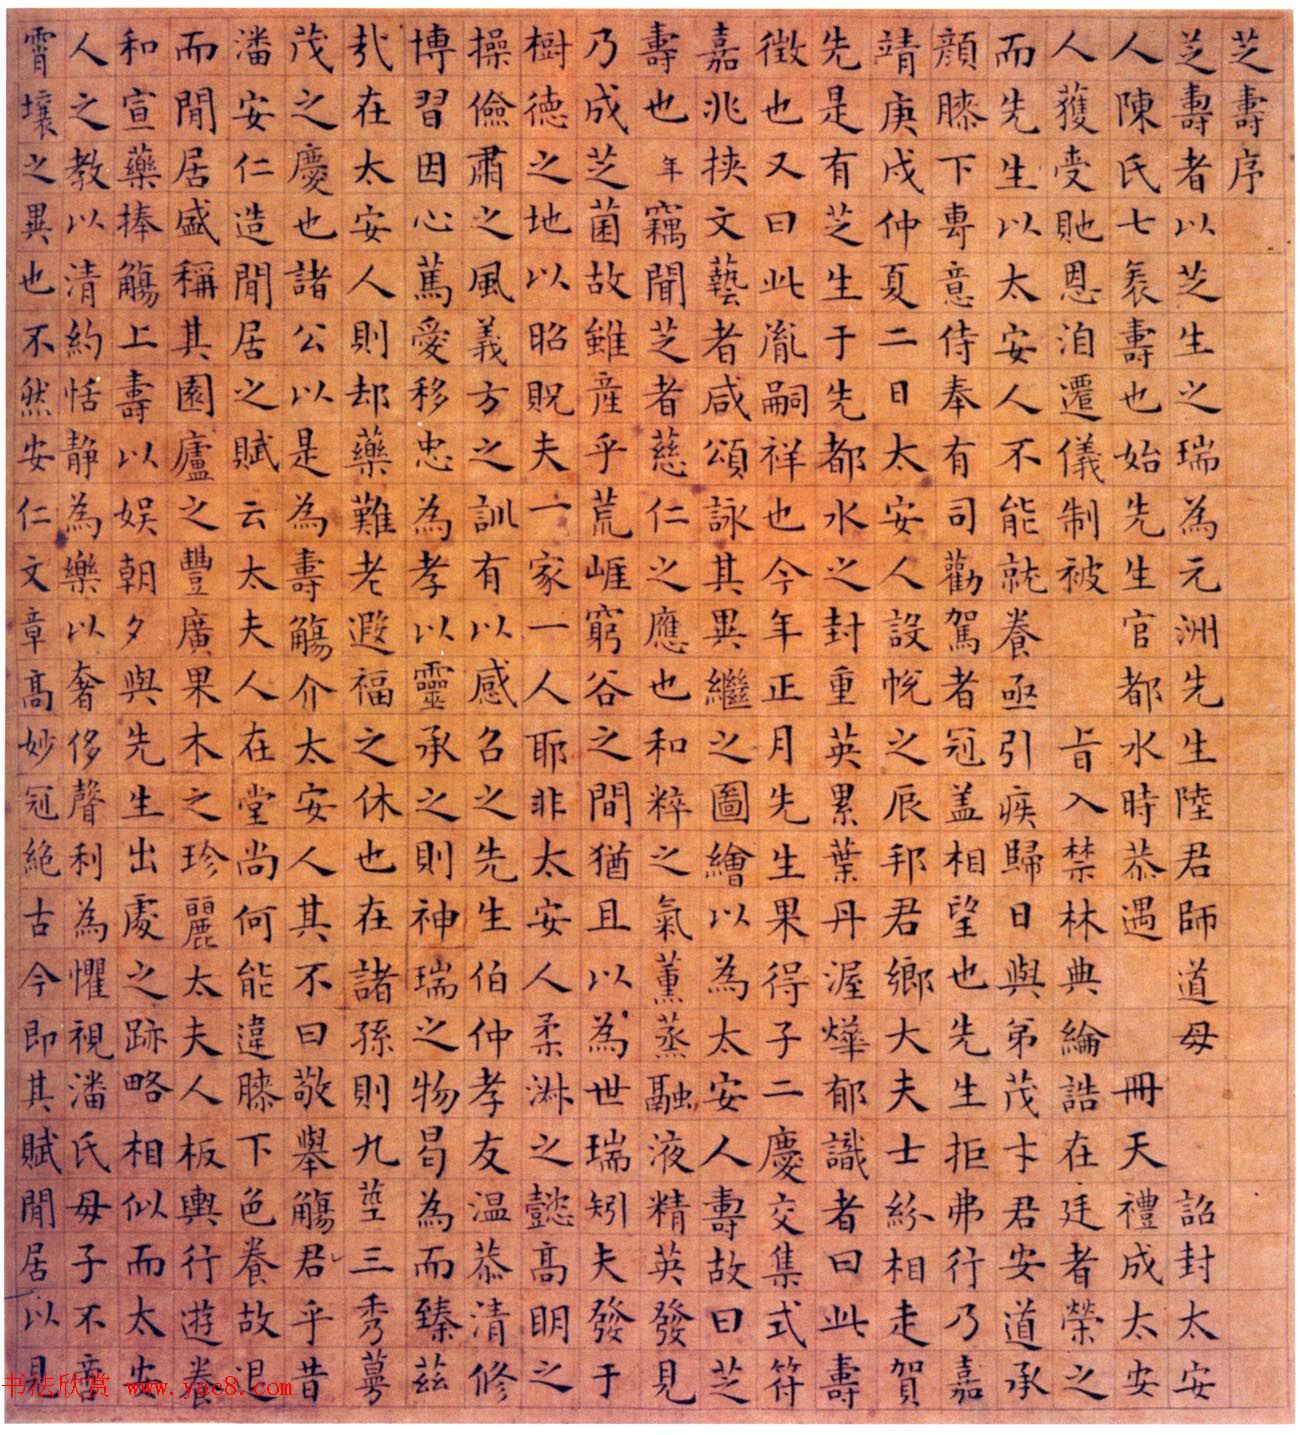 芝壽序
芝壽者以芝生之瑞為元洲先生陸君師道母詔封太安
人陳氏七袠壽也始先生官都水時恭遇冊天禮成太安
人獲受貤恩洎遷儀制被旨入禁林典綸誥在廷者榮之
而先生以太安人不能就養亟引疾歸日與弟茂卞君安道承
顏膝下專意侍奉有司勸駕者冠盖相望也先生拒弗行乃嘉
靖庚戌仲夏二日太安人設帨之辰邦君鄉大夫士紛相走賀
先是有芝生于先都水之封重英累葉丹渥燁郁識者曰此壽
徵也又曰此胤嗣祥也今年正月先生果得子二慶交集式符
嘉兆挾文藝者咸頌詠其異繼之圖繪以為太安人壽故曰芝
壽也年竊聞芝者慈仁之應也和粹之氣薰蒸融液精英發見
乃成芝菌故雖産乎荒崕窮谷之間猶且以為世瑞矧夫發于
樹德之地以昭貺夫一家一人耶非太安人柔淑之懿高明之
操儉肅之風義方之訓有以感召之先生伯仲孝友温恭清修
博習因心篤愛移忠為孝以靈承之則神瑞之物曷為而臻茲
㢤在太安人則却藥難老遐福之休也在諸孫則九莖三秀蕚
茂之慶也諸公以是為壽觴介太安人其不曰敬舉觴君乎昔
潘安仁造閒居之賦云太夫人在堂尚何能違膝下色養故退
而閒居盛稱其園廬之豐廣果木之珍麗太夫人板輿行遊養
和宣藥捧觴上壽以娱朝夕與先生出處之跡略相似而太安
人之教以清約恬静為樂以奢侈聲利為懼視潘氏母子不啻
霄壤之異也不然安仁文章高妙冠絶古今即其賦閒居以見
书法欣赏 www.yac8.com